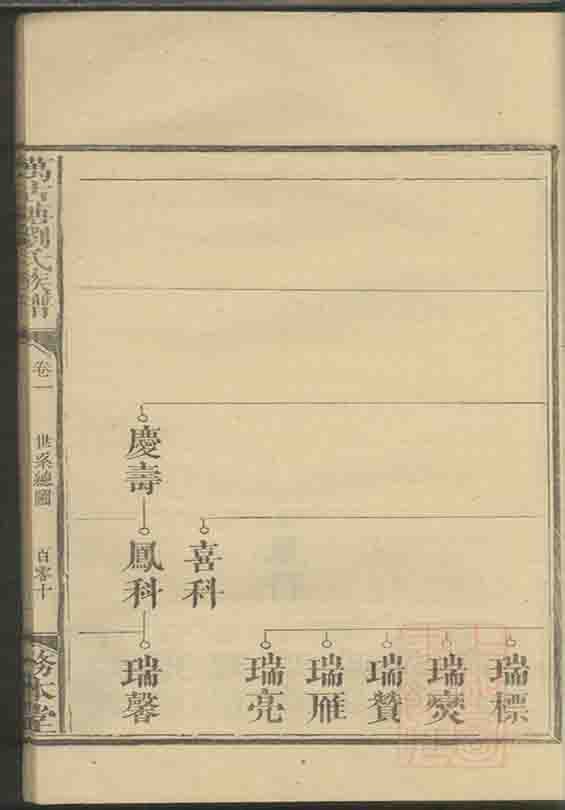 慶壽
喜科
鳳科
瑞標
瑞爽
瑞贊
瑞雁
瑞亮
瑞馨
劉氏族譜
卷一
世系總圖
百零十
務本堂